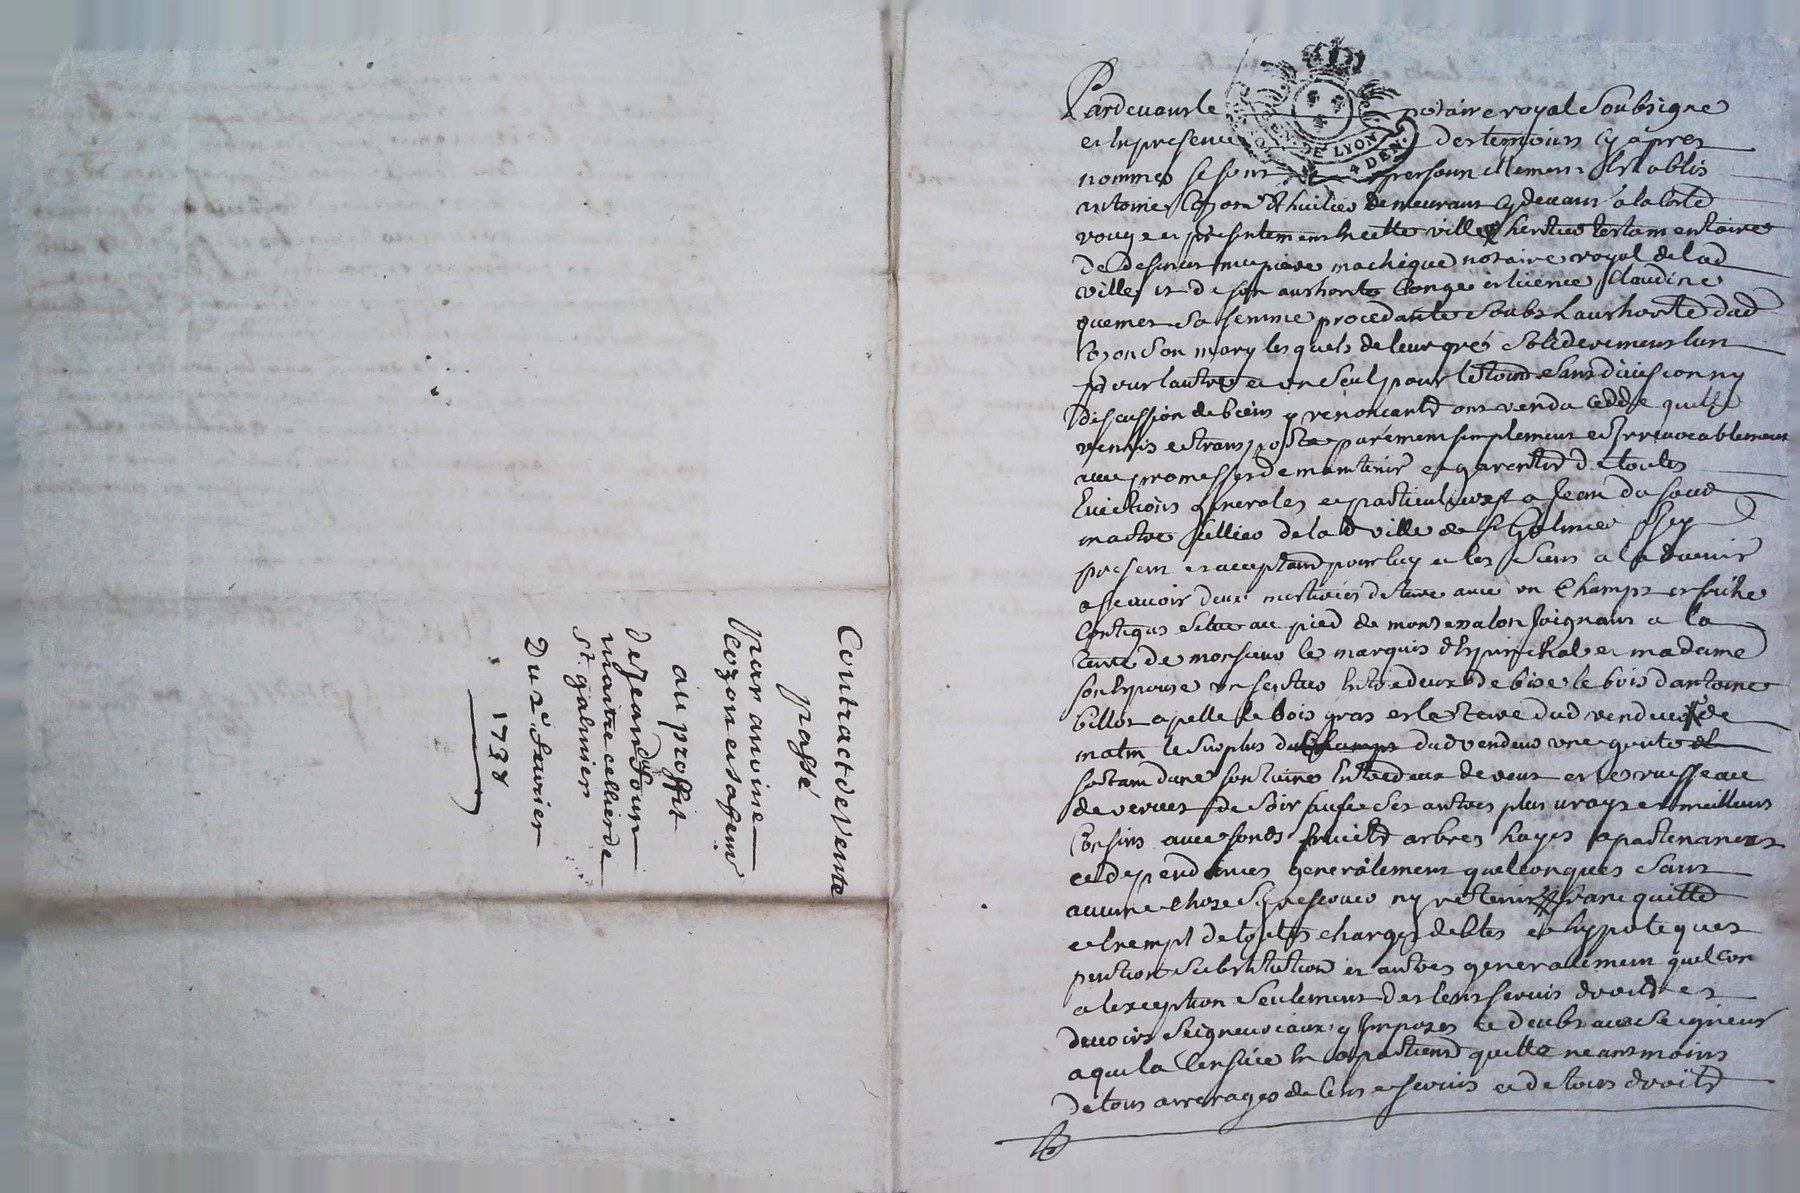 Contract de Vente
passé
par anthoine
Cozon et sa femme
au proffit
de Jean dufour
maitre cellier de
St. galmier
Du 2e fevrier
1738
GEN. DE LYON
4 DEN.
Pardevant le notaire royal soubsigne
et en presence des temoins cy apres
nommes se sont personnellement Establis
antoine Cozon huilier demeurant cy devant a la coste
rouge et presentement en cette ville heritier testamentaire
de deffunt me pierre notaire royal de lad
ville et de son authorite Conge et licence Claudine
sa femme procedante soubs l'authorite dud
Cozon son mary lesquels de leur gré soliderement lun
pour lautre et un seul pour le tout sans division ny
discussion de biens y renonceant ont vendu cedde quitte
remis et transporte purement simplement et Irrevocablement
avec promesses de maintenir et garentir de toutes
Evictions generales et particulieres a Jean du four
maitre sellier de lad ville de St Galmier Icy
present et acceptant pour luy et les siens a l'advenir
a scavoir deux de terre avec un Champt en friche
Contigus situe au pied de joignant a la
terre de monsieur le marquis d'Espinchal et madame
son Epouse un sentier Entre deux de bise le bois d'antoine
billot apelle le bois gras et le terre dud vendeur de
matin le surplus du dud vendeur une goute
sortant dune fontaine Entredeux de vent et le ruisseau
de de soir sauf ses autres plus vrays et meilleurs
Confins avec fonds fruicts arbres hayes apartenances
et dependances generalement quelconques sans
aucune chose se reserver ny retenir franc quitte
et Exempt de toutes charges debtes et hypoteques
pention substitution et autres generalement quelcon
a lexception seulement des cens servis droits et
devoirs seigneuriaux y Imposes et deubs au seigneur
a qui la Censive En apartient quitte neantmoins
de tous arrerages de cens et servis et de tous droits